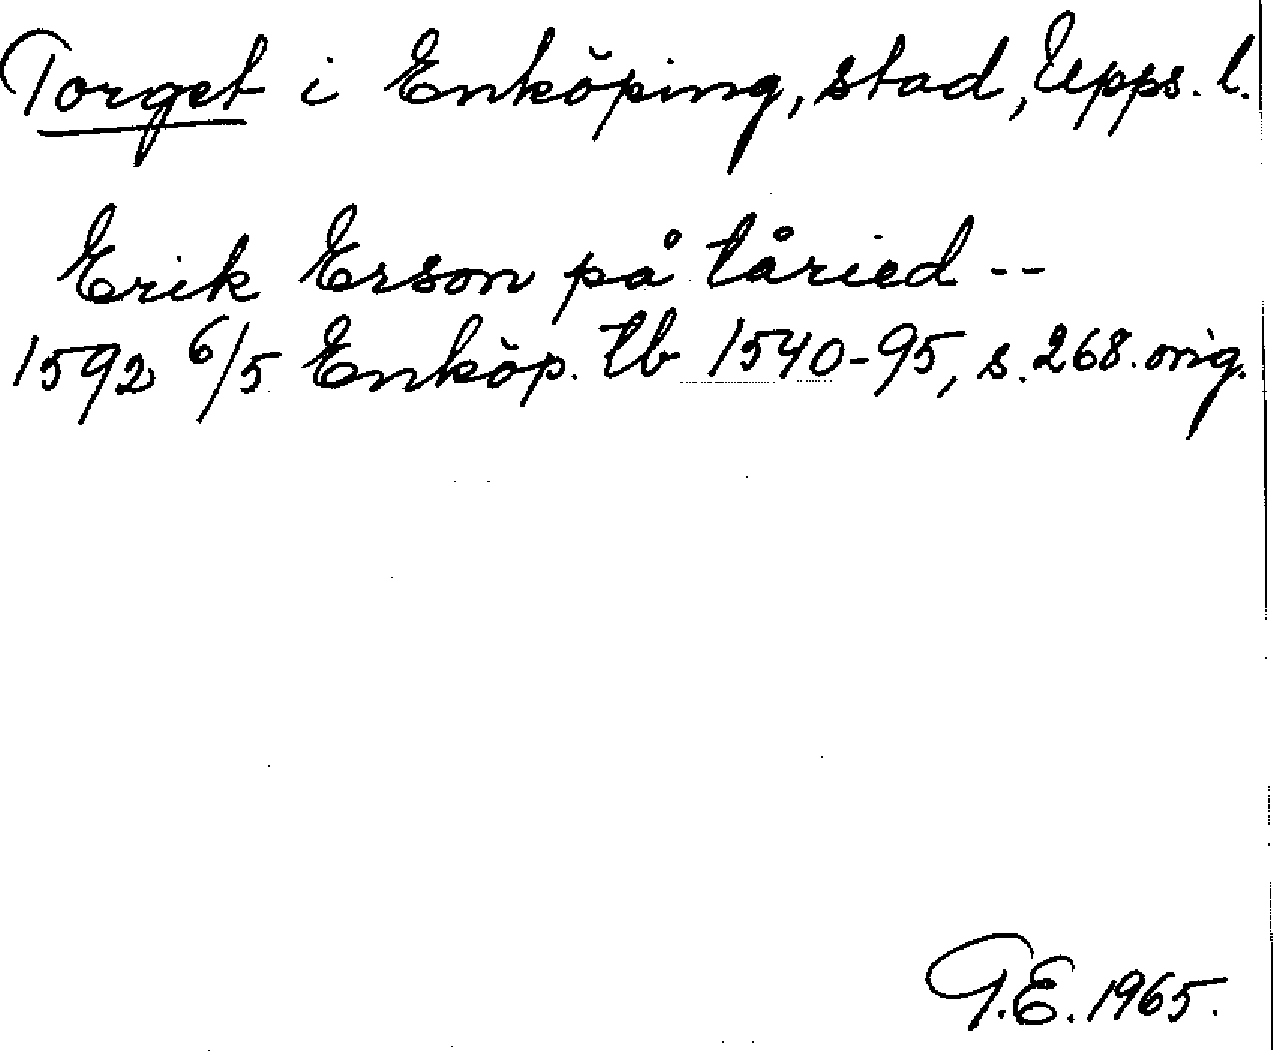 Torget i Enköping, stad, Upps. l.
Erik Erson på tåried --
1592 6/5 Enköp. tb 1540-95, s. 268. orig.
G.E. 1965.